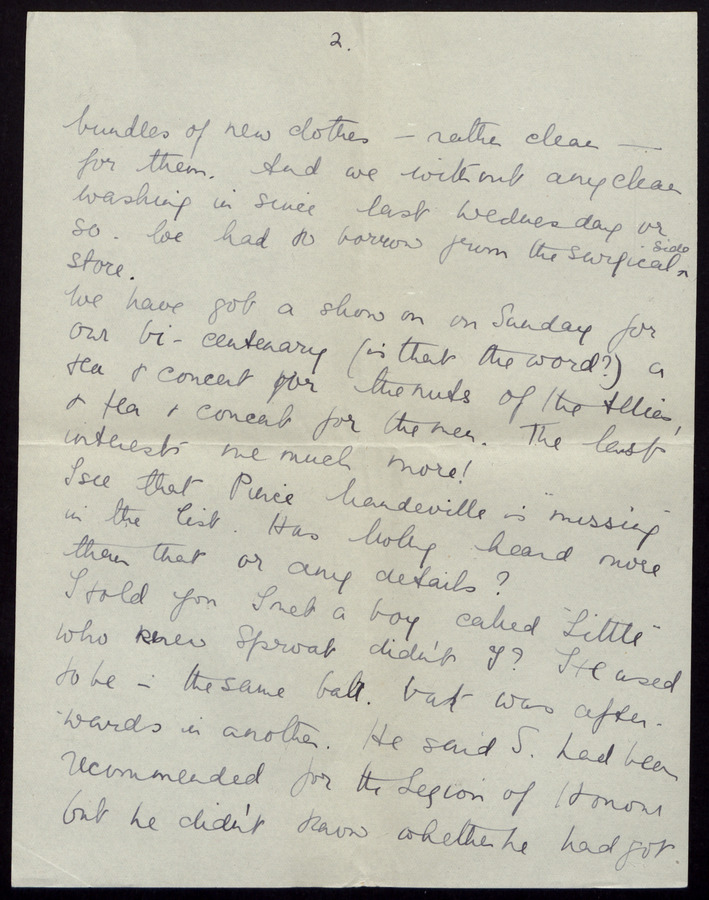 2.
bundles of new clothes — rather clean —
for them. And we without any clean
washing in since last Wednesday or
so. We had to borrow from the surgical side
store.
We have got a show on on Sunday for
our bi-centenary (is that the word?) a
tea & concert for the nuts of the Allies,
& tea & concert for the men. The last
interests me much more!
I see that Pierce Mandeville is "missing"
in the list. Has Molly heard more
than that or any details?
I told you I met a boy called "Little"
who knew Sproat didn't I? He used
to be in the same batt. but was after-
wards in another. He said S. had been
recommended for the Legion of Honour
but he didn't know whether he had got